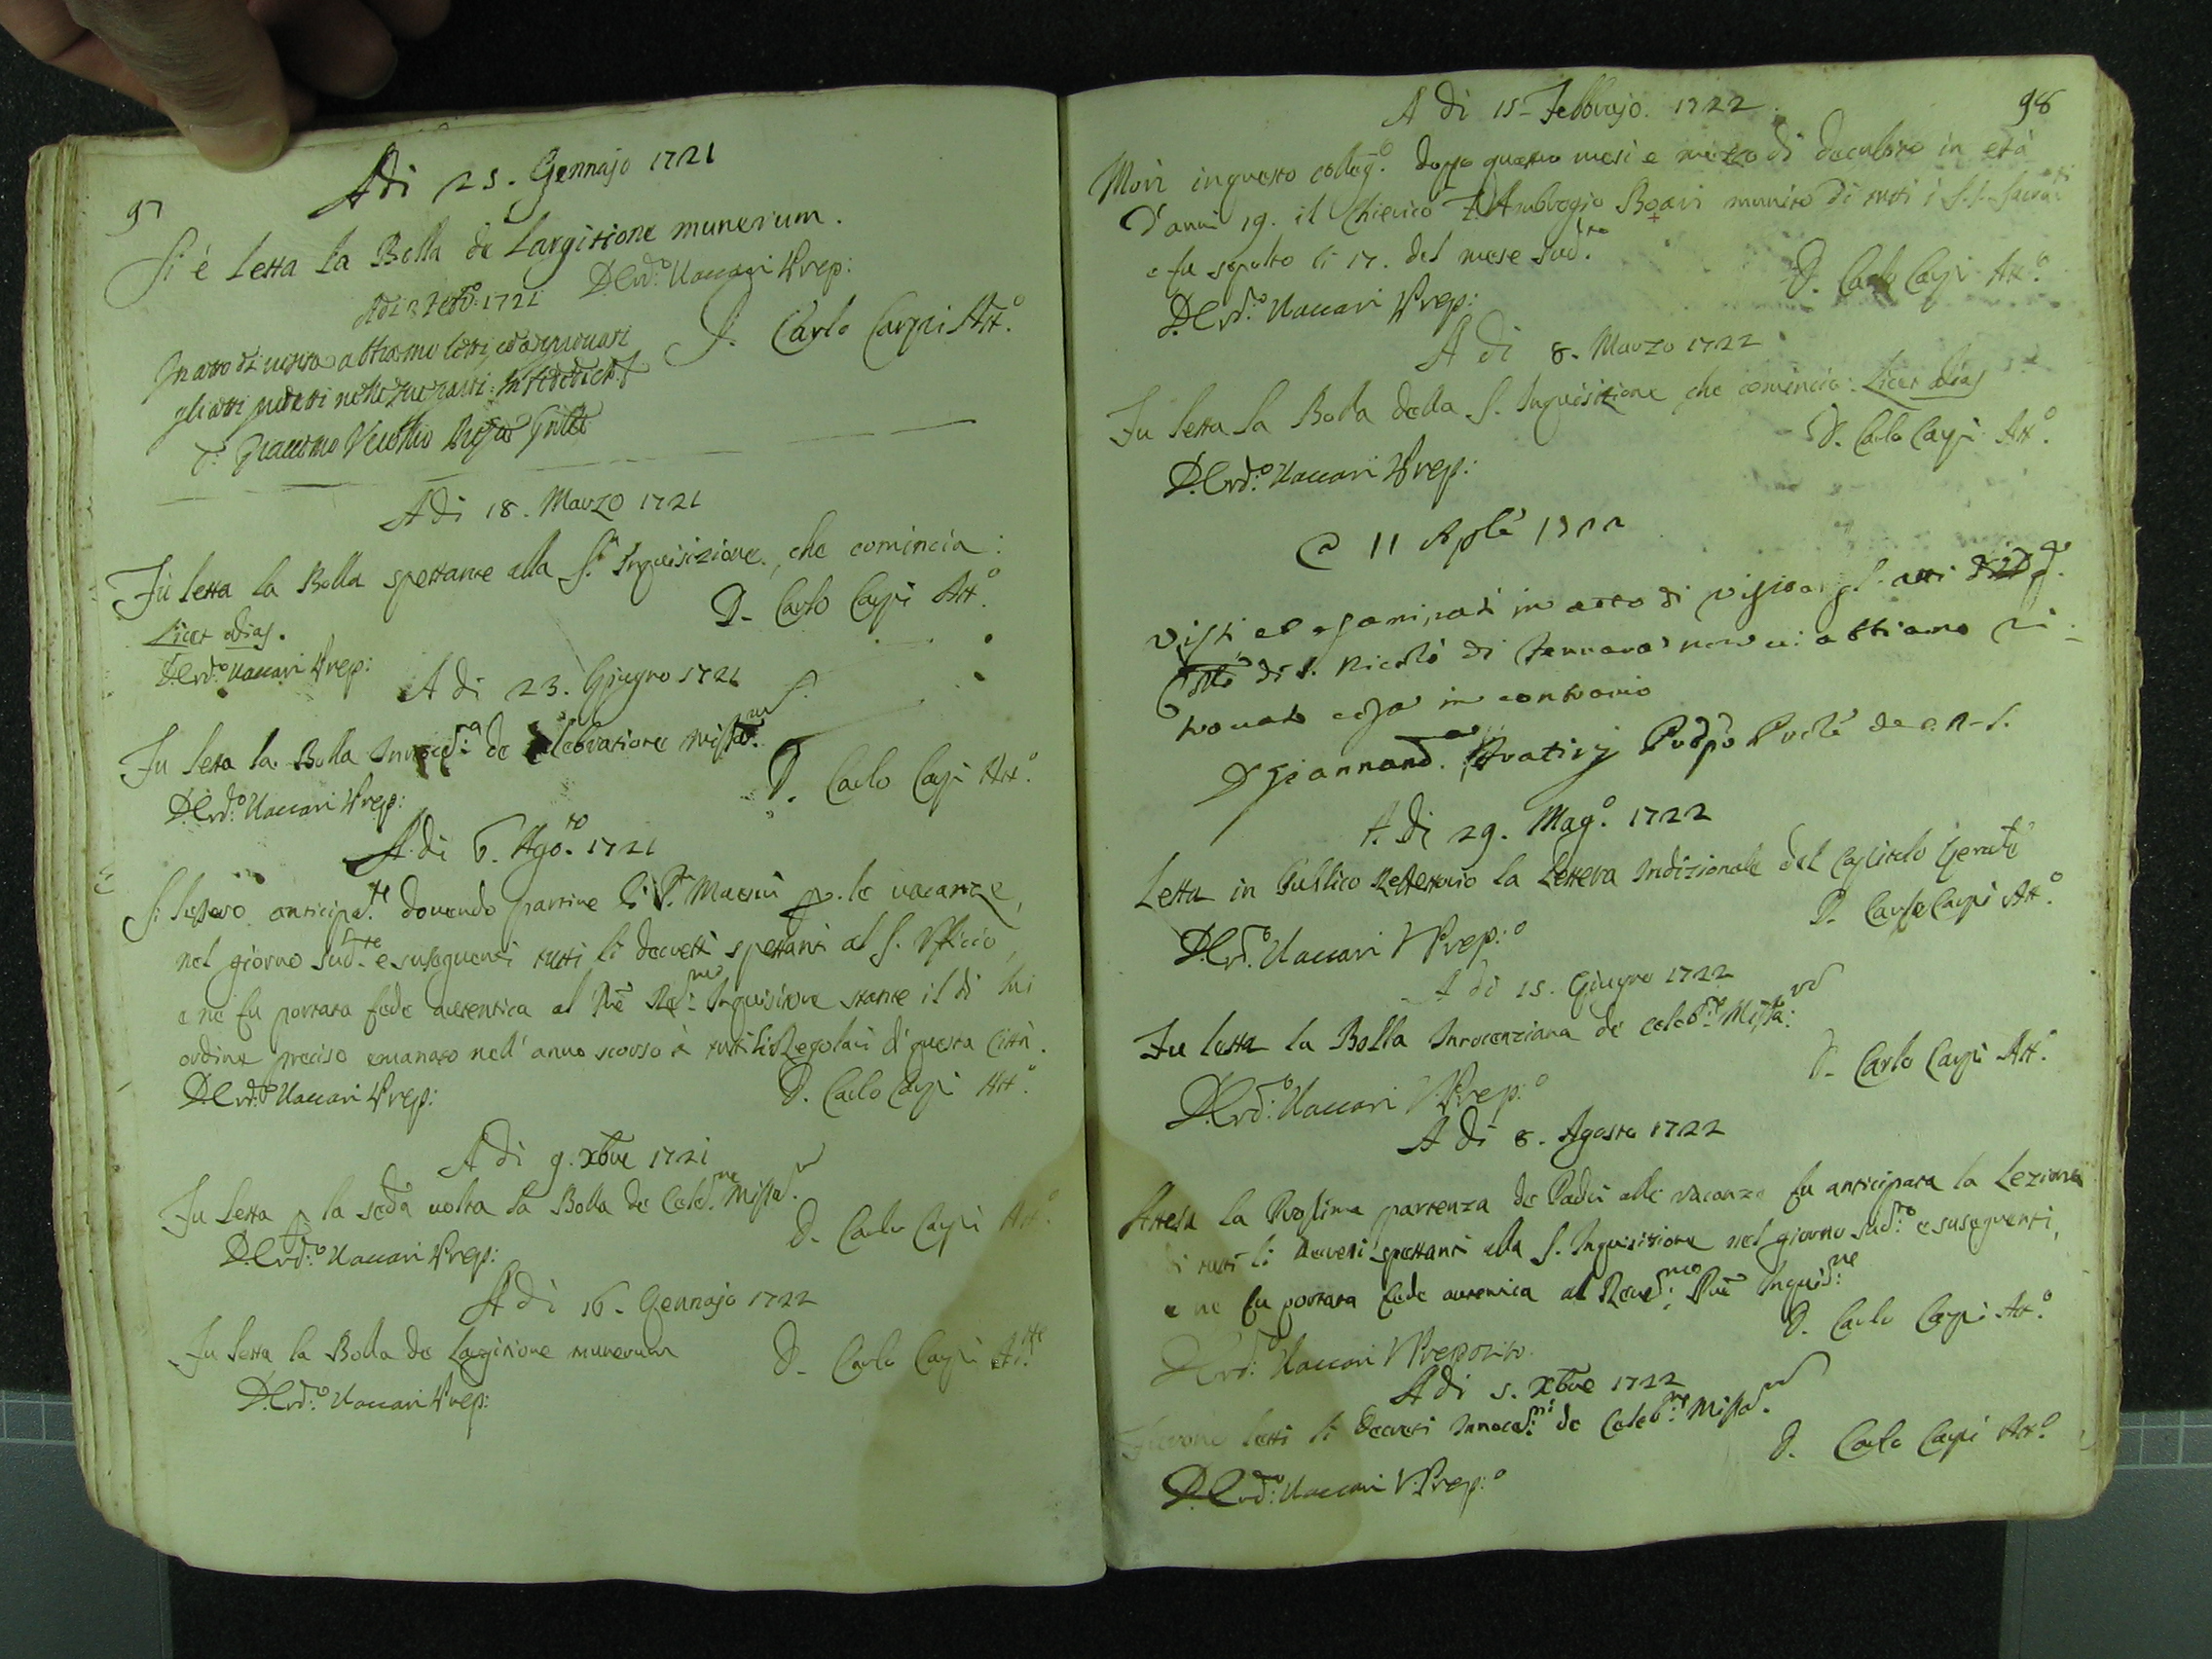 97
A di 25. Gennajo 1721
Si è letta la Bolla de Largitione munerum.
D. Erd.º Vaccari Prep:
D. Carlo Carpi Att.º
Adi 2 1721
In atto di visita abbiamo letti, ed approvati
gli atti
D. Giacomo Vecellio
A di 18. Marzo 1721
Fù letta la Bolla spettante alla S.ª Inquisizione, che comincia:
Licet alias.
D. Carlo Carpi Att.º
D. Erd.º Vaccari Prep:
A di 23. Giugno 1721
Fu letta la Bolla Innoced.ª de Celebratione Missar.
D. Carlo Carpi Att.º
D. Erd.º Vaccari Prep:
A di 6. Ago.to 1721
Si lessero anticipa.te dovendo partire li P. Maestri p. le vacanze,
nel giorno sud.te e suseguenti tutti li decreti spettanti al S. Ufficio,
e ne fu portata fede autentica al Prē Re.mo Inquisitore stante il di lui
ordine preciso emanato nell' anno scorso à tutti li Regolari di questa Città.
D. Carlo Carpi Att.º
D. Erd.º Vaccari Prep:
A di 9. Xbre 1721
Fu letta p la secda volta la Bolla de Celeb.ne Missar.
D. Carlo Carpi Att.º
D. Erd.º Vaccari Prep:
A di 16. Gennajo 1722
Fu letta la Bolla de Largitione munerum
D. Carlo Carpi Att.
D. Erd.º Vaccari Prep:
98
A di 15. Febbrajo. 1722.
Morì in questo colleg.º doppo quattro mesi e mezzo di decubito in età
d'anni 19. il Chierico F. Ambrogio Boari munito di tutti i S.S. Sacra.ti
e fu sepolto li 17. del mese sud.to
D. Carlo Carpi Att.º
D. Erd.º Vaccari Prep:
A di 8. Marzo 1722
Fu letta la Bolla della S. Inquisizione che comincia: Licet alias
D. Carlo Carpi Att.º
D. Erd.º Vaccari Prep:
A 11 Aple 1722
Visti, ed esaminati in atto di visita gl' atti di qto
Collo di S. Nicolò di Ferrara non vi abbiamo ri-
trovato cosa in contrario
D. Giannant.
A. di 29. Mag.º 1722
Letta in Publico Reffettorio la Lettera Indizionale del Capitolo Gen.le
D. Carlo Carpi Att.º
D. Erd.º Vaccari V Prep:º
A di 15. Giugno 1722
Fu letta la Bolla Innocenziana de celeb.ne Missar:
D. Carlo Carpi Att.º
D. Erd.º Vaccari V. Prep:º
A di 8. Agosto 1722
Attesa la Prossima partenza de Padri alle vacanze fu anticipata la Lezione
di tutti li decreti spettanti alla S. Inquisizione nel giorno sud.º e suseguenti,
e ne fu portata fede autentica al Rever.mo Prē Inquis.re
D. Carlo Carpi Att.º
D. Erd.º Vaccari V Preposito.
A di 5. Xbre 1722
Furono letti li Decreti Innoced.ni de Celeb.ne Missar.
D. Carlo Carpi Att.º
D. Erd.º Vaccari V. Prep:º